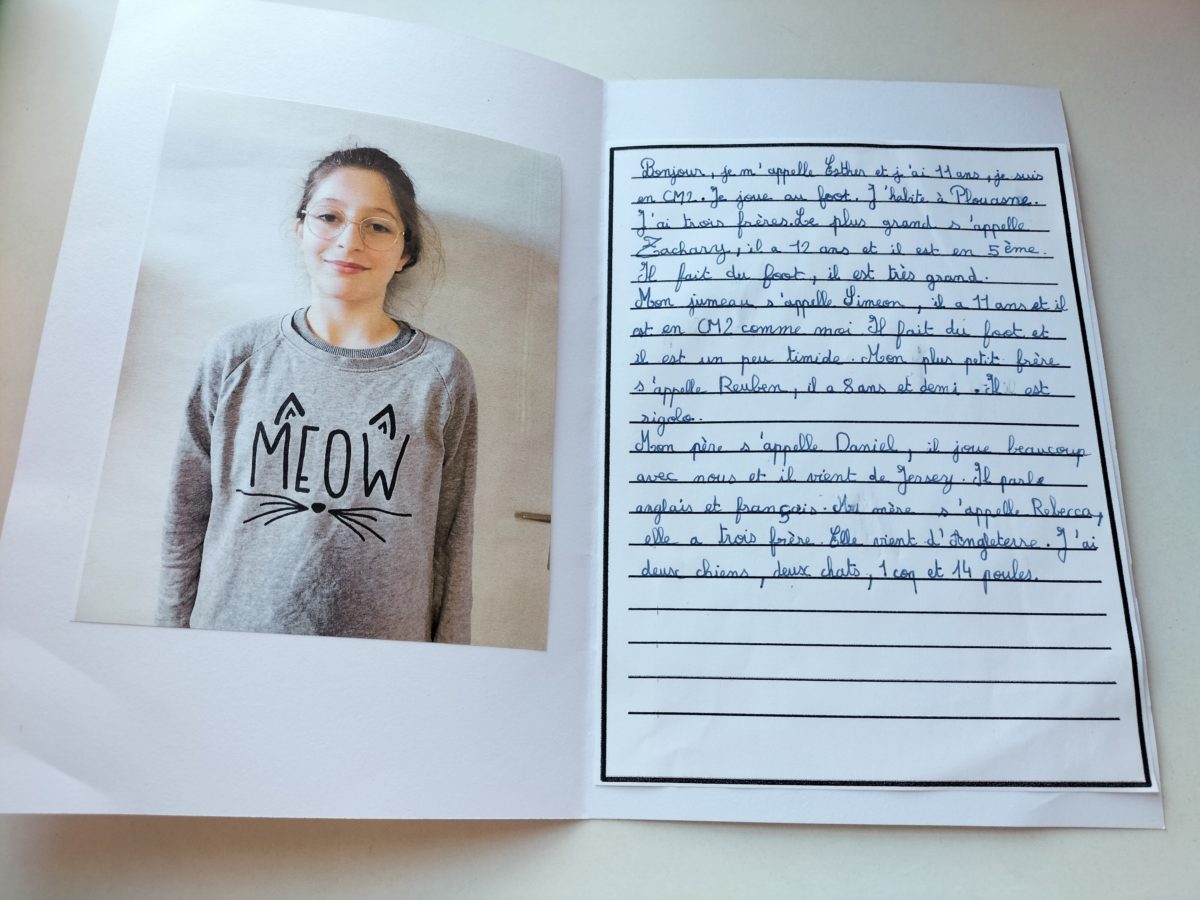 MEOW
Bonjour, je m'appelle Esther et j'ai 11 ans, je suis
en CM2. Je joue au foot. J'habite à Plouasne.
J'ai trois frères. Le plus grand s'appelle
Zachary, il a 12 ans et il est en 5ème.
Il fait du foot, il est très grand.
Mon jumeau s'appelle Simeon, il a 11 ans et il
est en CM2 comme moi Il fait du foot et
il est un peu timide. Mon plus petit frère
s'appelle Reuben, il a 8 ans et demi. Il est
rigolo.
Mon père s'appelle Daniel, il joue beaucoup
avec nous et il vient de Jersey. Il parle
anglais et français. Ma mère s'appelle Rebecca,
elle a trois frère. Elle vient d'Angleterre. J'ai
deux chiens, deux chats, 1 coq et 14 poules.